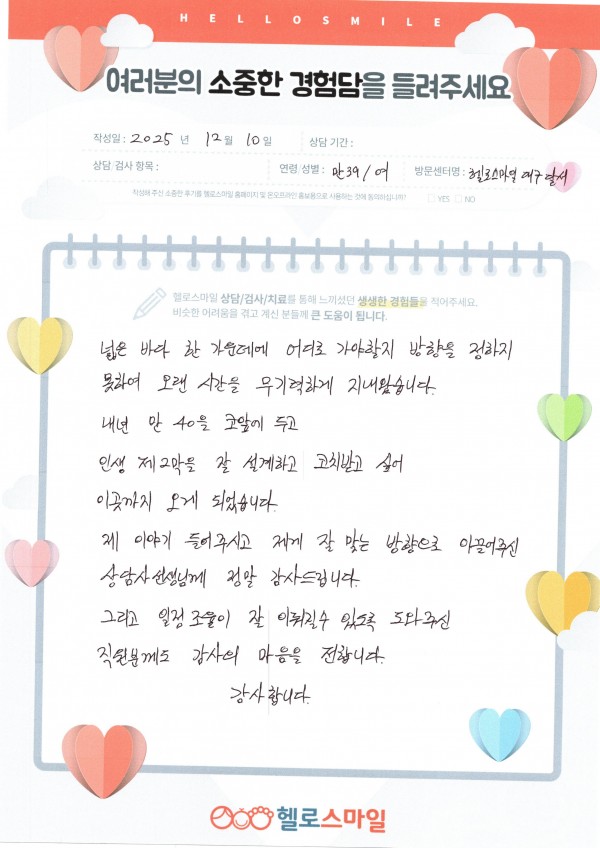 HELLOSMILE
여러분의 소중한 경험담을 들려주세요
작성일 : 2025 년 12 월 10 일 상담 기간 :
상담/검사 항목 : 연령 성별 : 만39/여 방문센터명 : 헬로스마일 대구달서
작성해 주신 소중한 후기를 헬로스마일 홈페이지 및 온오프라인 홍보용으로 사용하는 것에 동의하십니까? YES NO
헬로스마일 상담/검사/치료를 통해 느끼셨던 생생한 경험들을 적어주세요.
비슷한 어려움을 겪고 계신 분들께 큰 도움이 됩니다.
넓은 바다 한 가운데에 어디로 가야할지 방향을 정하지
못하여 오랜 시간을 무기력하게 지내왔습니다.
내년 만 40을 코앞에 두고
인생 제2막을 잘 설계하고 코치받고 싶어
이곳까지 오게 되었습니다.
제 이야기 들어주시고 제게 잘 맞는 방향으로 이끌어주신
상담사선생님께 정말 감사드립니다.
그리고 일정조율이 잘 이뤄질수 있도록 도와주신
직원분께도 감사의 마음을 전합니다.
감사합니다.
헬로스마일